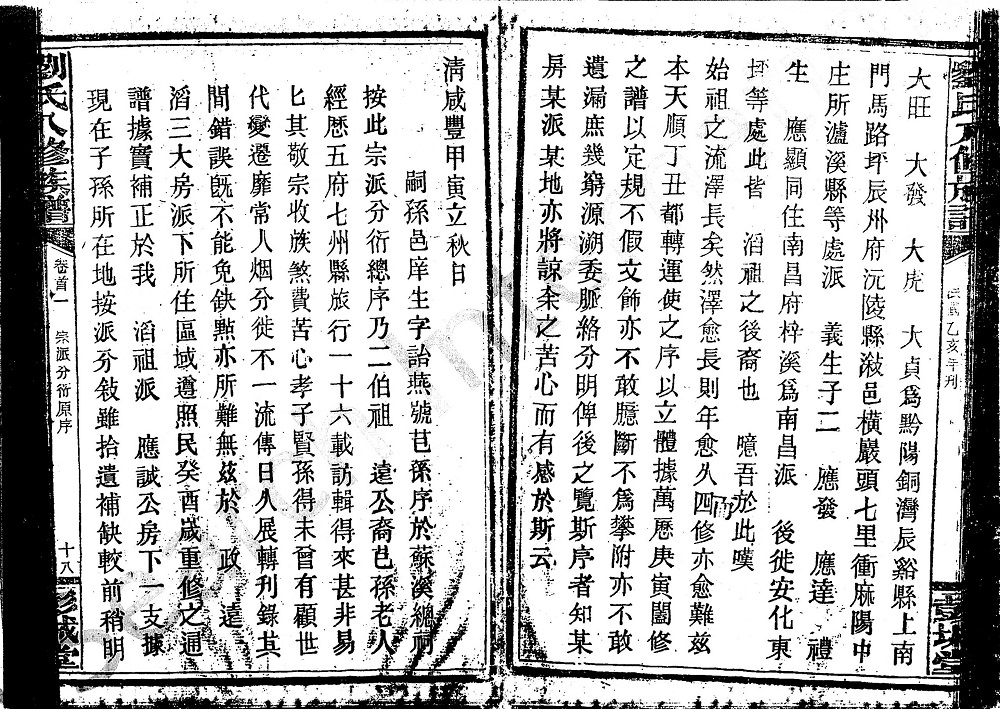 大旺 大發 大虎 大貞爲黔陽銅灣辰谿縣上南
門馬路坪辰州府沅陵縣漵邑橫巖頭七里衝麻陽中
庄所瀘溪縣等處派 義生子二 應發 應達 禮
生 應顯同住南昌府梓溪爲南昌派 後徙安化東
坪等處此皆 滔祖之後裔也 噫吾於此嘆
始祖之流澤長矣然澤愈長則年愈久四修亦愈難茲
本天順丁丑都轉運使之序以立體據萬厯庚寅闔修
之譜以定規不假文飾亦不敢臆斷不爲攀附亦不敢
遺漏庶幾窮源溯委脈絡分明俾後之覽斯序者知某
房某派某地亦將諒余之苦心而有感於斯云
清咸豐甲寅立秋日
嗣孫邑庠生字詒燕號芑孫序於蘇溪總祠
按此宗派分衍總序乃二伯祖 遠公裔芑孫老人
經歷五府七州縣旅行一十六載訪輯得來甚非易
匕其敬宗收族煞費苦心孝子賢孫得未曾有顧世
代變遷靡常人烟分徙不一流傳日久展轉刊錄其
間錯誤旣不能免缺點亦所難無茲於 政 遠
滔三大房派下所住區域遵照民癸酉歲重修之通
譜據實補正於我 滔祖派 應誠公房下一支據
現在子孫所在地按派分敍雖拾遺補缺較前稍明
劉氏八修族譜
卷首一
宗派分衍原序
十八
彭城堂